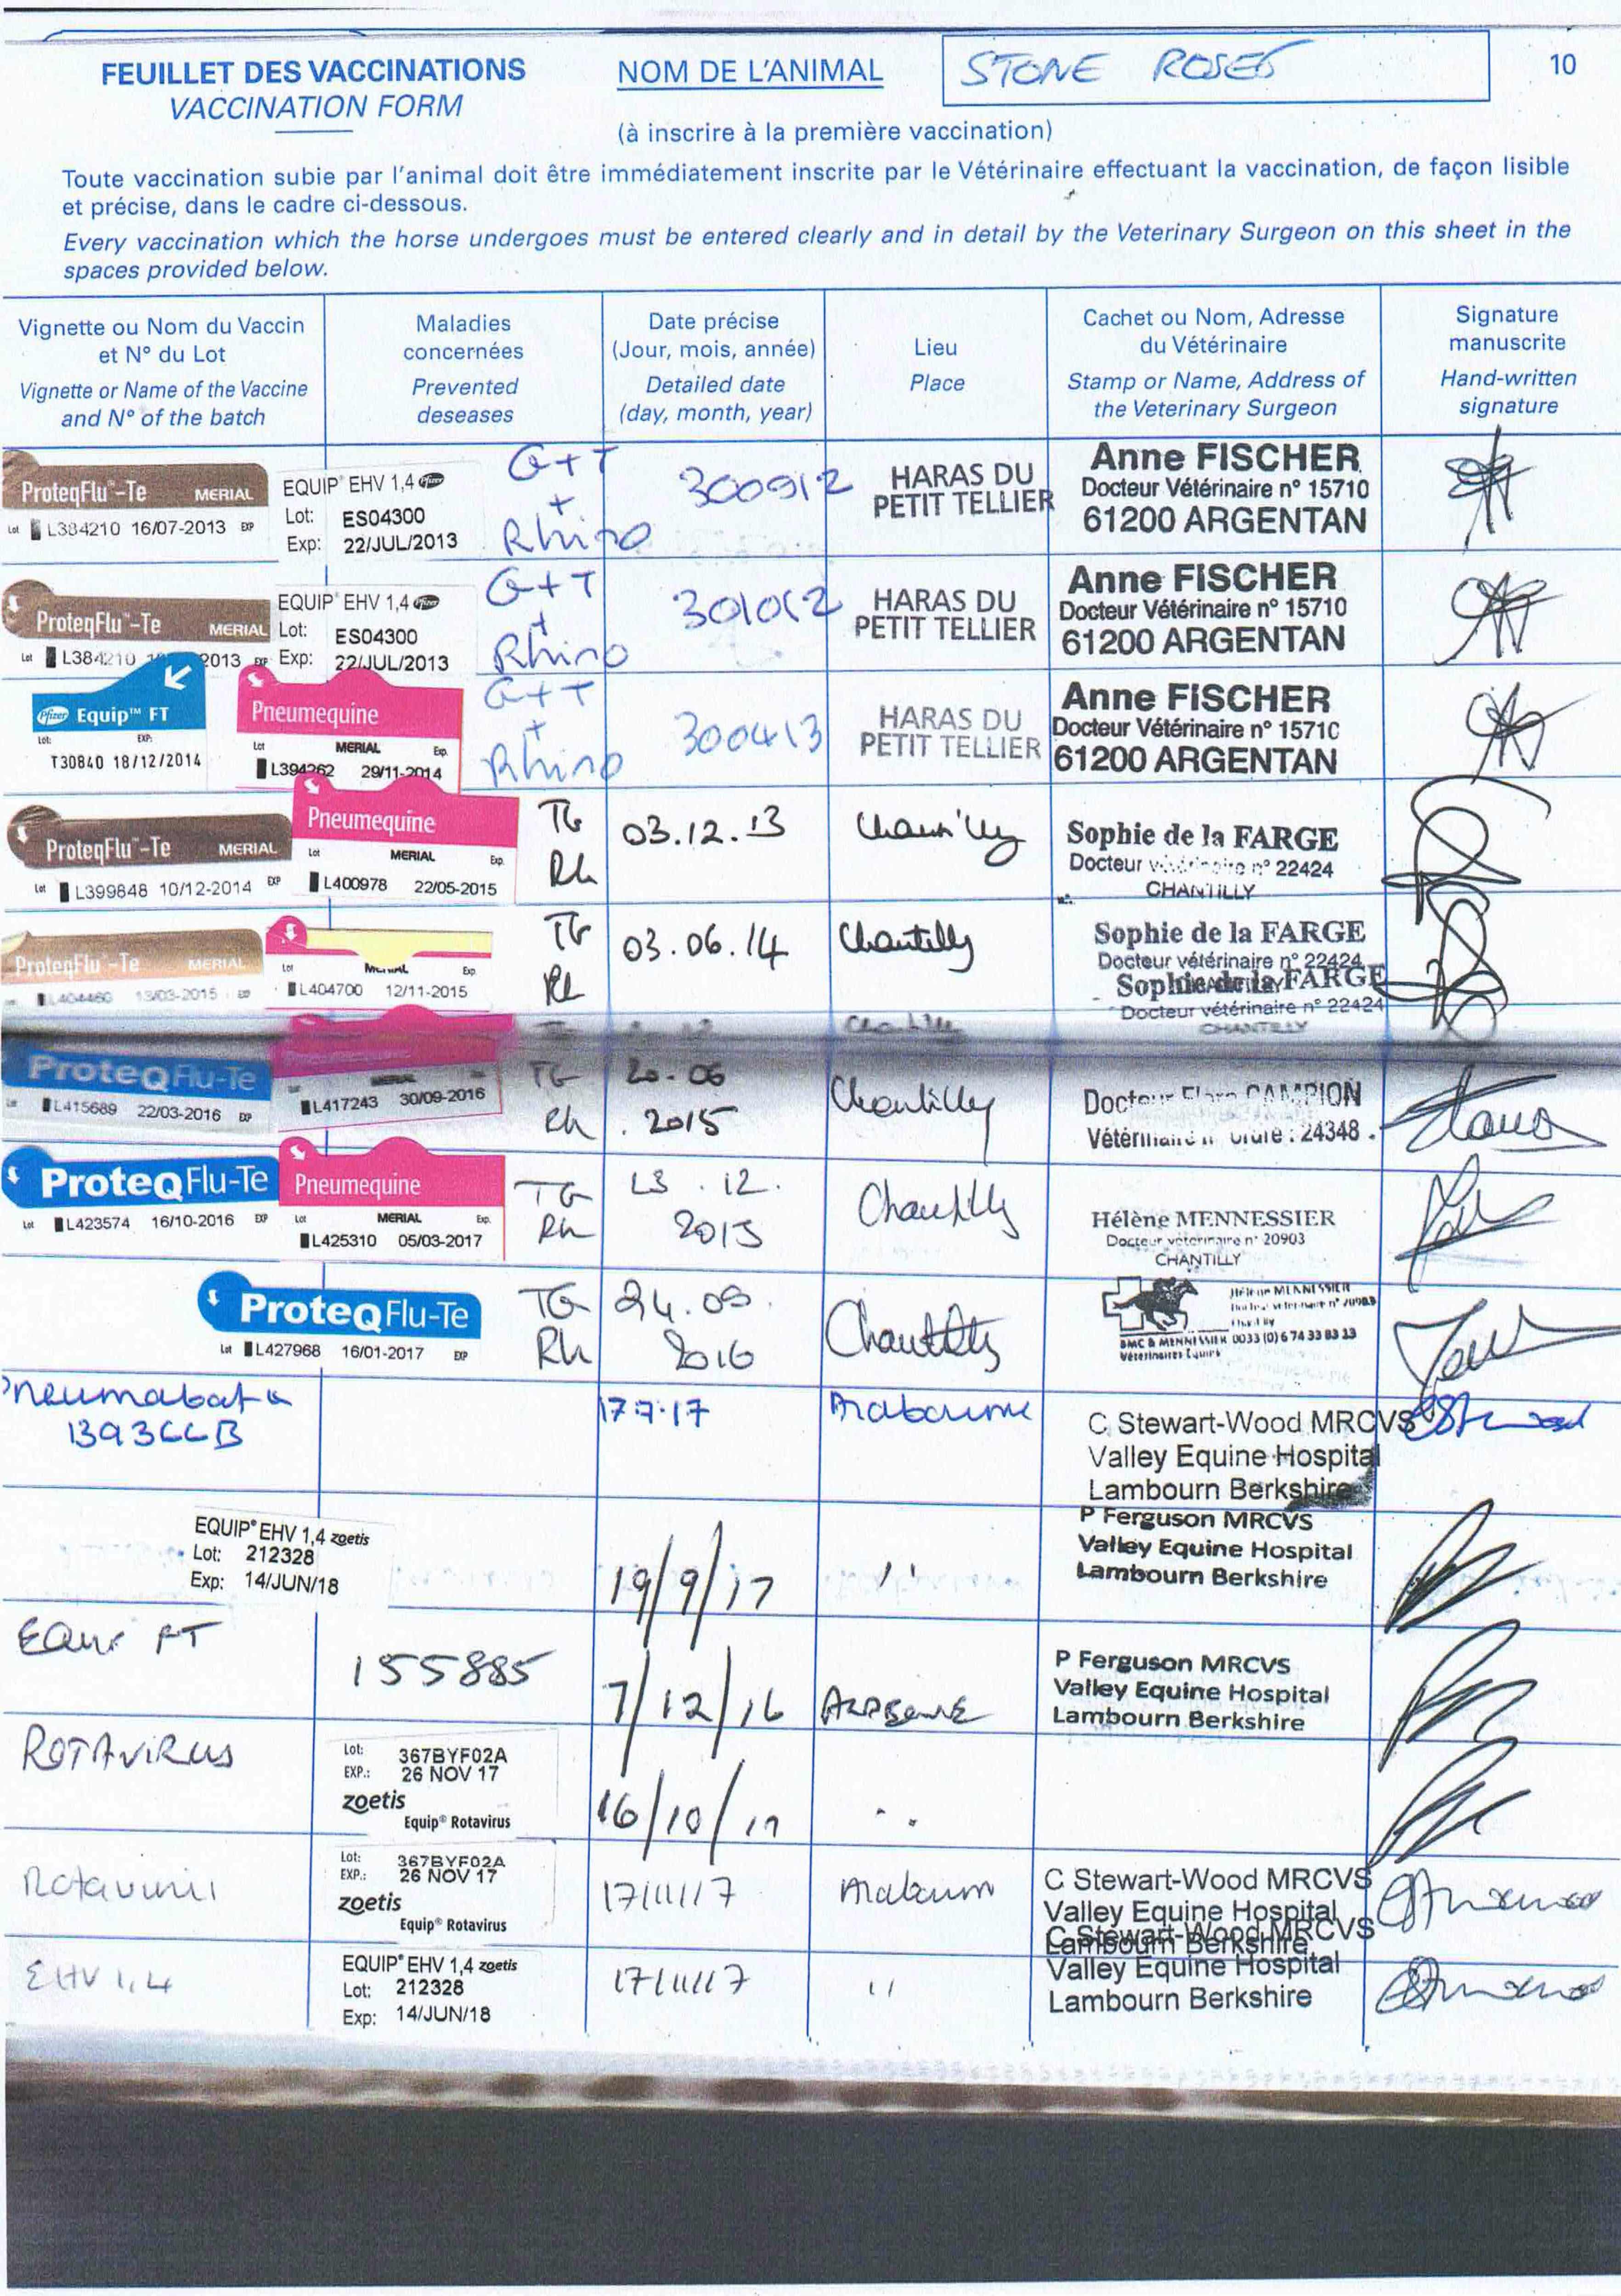 FEUILLET DES VACCINATIONS
VACCINATION FORM
NOM DE L'ANIMAL
STONE ROSES
10
(à inscrire à la première vaccination)
Toute vaccination subie par l'animal doit être immédiatement inscrite par le Vétérinaire effectuant la vaccination, de façon lisible
et précise, dans le cadre ci-dessous.
Every vaccination which the horse undergoes must be entered clearly and in detail by the Veterinary Surgeon on this sheet in the
spaces provided below.
Vignette ou Nom du Vaccin
et N° du Lot
Vignette or Name of the Vaccine
and N° of the batch
Maladies
concernées
Prevented
deseases
Date précise
(Jour, mois, année)
Detailed date
(day, month, year)
Lieu
Place
Cachet ou Nom, Adresse
du Vétérinaire
Stamp or Name, Address of
the Veterinary Surgeon
Signature
manuscrite
Hand-written
signature
ProteqFlu™-Te MERIAL
Lot L384210 16/07-2013 EXP
EQUIP® EHV 1,4 Pfizer
Lot: ES04300
Exp: 22/JUL/2013
G+T
+
Rhino
300912
HARAS DU
PETIT TELLIER
Anne FISCHER
Docteur Vétérinaire n° 15710
61200 ARGENTAN
ProteqFlu™-Te MERIAL
Lot L384210 2013 EXP
EQUIP® EHV 1,4 Pfizer
Lot: ES04300
Exp: 22/JUL/2013
G+T
+
Rhino
301012
HARAS DU
PETIT TELLIER
Anne FISCHER
Docteur Vétérinaire n° 15710
61200 ARGENTAN
Pfizer Equip™ FT
Lot: EXP:
T30840 18/12/2014
Pneumequine
Lot MERIAL Exp.
L394262 29/11-2014
G+T
+
Rhino
300413
HARAS DU
PETIT TELLIER
Anne FISCHER
Docteur Vétérinaire n° 15710
61200 ARGENTAN
ProteqFlu™-Te MERIAL
Lot L399848 10/12-2014 EXP
Pneumequine
Lot MERIAL Exp.
L400978 22/05-2015
TG
Rh
03.12.13
Chantilly
Sophie de la FARGE
Docteur vétérinaire n° 22424
CHANTILLY
ProteqFlu™-Te MERIAL
L404460 13/03-2015 EXP
Lot MERIAL Exp.
L404700 12/11-2015
TG
Rh
03.06.14
Chantilly
Sophie de la FARGE
Docteur vétérinaire n° 22424
Sophie de la FARGE
Docteur vétérinaire n° 22424
CHANTILLY
ProteQFlu-Te
L415689 22/03-2016 EXP
MERIAL
L417243 30/09-2016
TG
Rh
20.06
.2015
Chantilly
Docteur CAMPION
Vétérinaire n° Ordre : 24348
ProteQFlu-Te
Lot L423574 16/10-2016 EXP
Pneumequine
Lot MERIAL Exp.
L425310 05/03-2017
TG
Rh
13.12.
2015
Chantilly
Hélène MENNESSIER
Docteur vétérinaire n° 20903
CHANTILLY
ProteQFlu-Te
Lot L427968 16/01-2017 EXP
TG
Rh
24.05.
2016
Chantilly
Hélène MENNESSIER
Docteur vétérinaire n° 20903
Chantilly
BMC & MENNESSIER 0033 (0)6 74 33 83 23
Vétérinaires Equins
Pneumabort k
139366B
17.7.17
C Stewart-Wood MRCVS
Valley Equine Hospital
Lambourn Berkshire
EQUIP® EHV 1,4 zoetis
Lot: 212328
Exp: 14/JUN/18
19/9/17
''
P Ferguson MRCVS
Valley Equine Hospital
Lambourn Berkshire
Equip FT
155885
7/12/16
P Ferguson MRCVS
Valley Equine Hospital
Lambourn Berkshire
ROTAVIRUS
Lot: 367BYF02A
EXP.: 26 NOV 17
zoetis
Equip® Rotavirus
16/10/17
Rotavirus
Lot: 367BYF02A
EXP.: 26 NOV 17
zoetis
Equip® Rotavirus
17/11/17
C Stewart-Wood MRCVS
Valley Equine Hospital
Lambourn Berkshire
EHV 1,4
EQUIP® EHV 1,4 zoetis
Lot: 212328
Exp: 14/JUN/18
17/11/17
''
C Stewart-Wood MRCVS
Valley Equine Hospital
Lambourn Berkshire